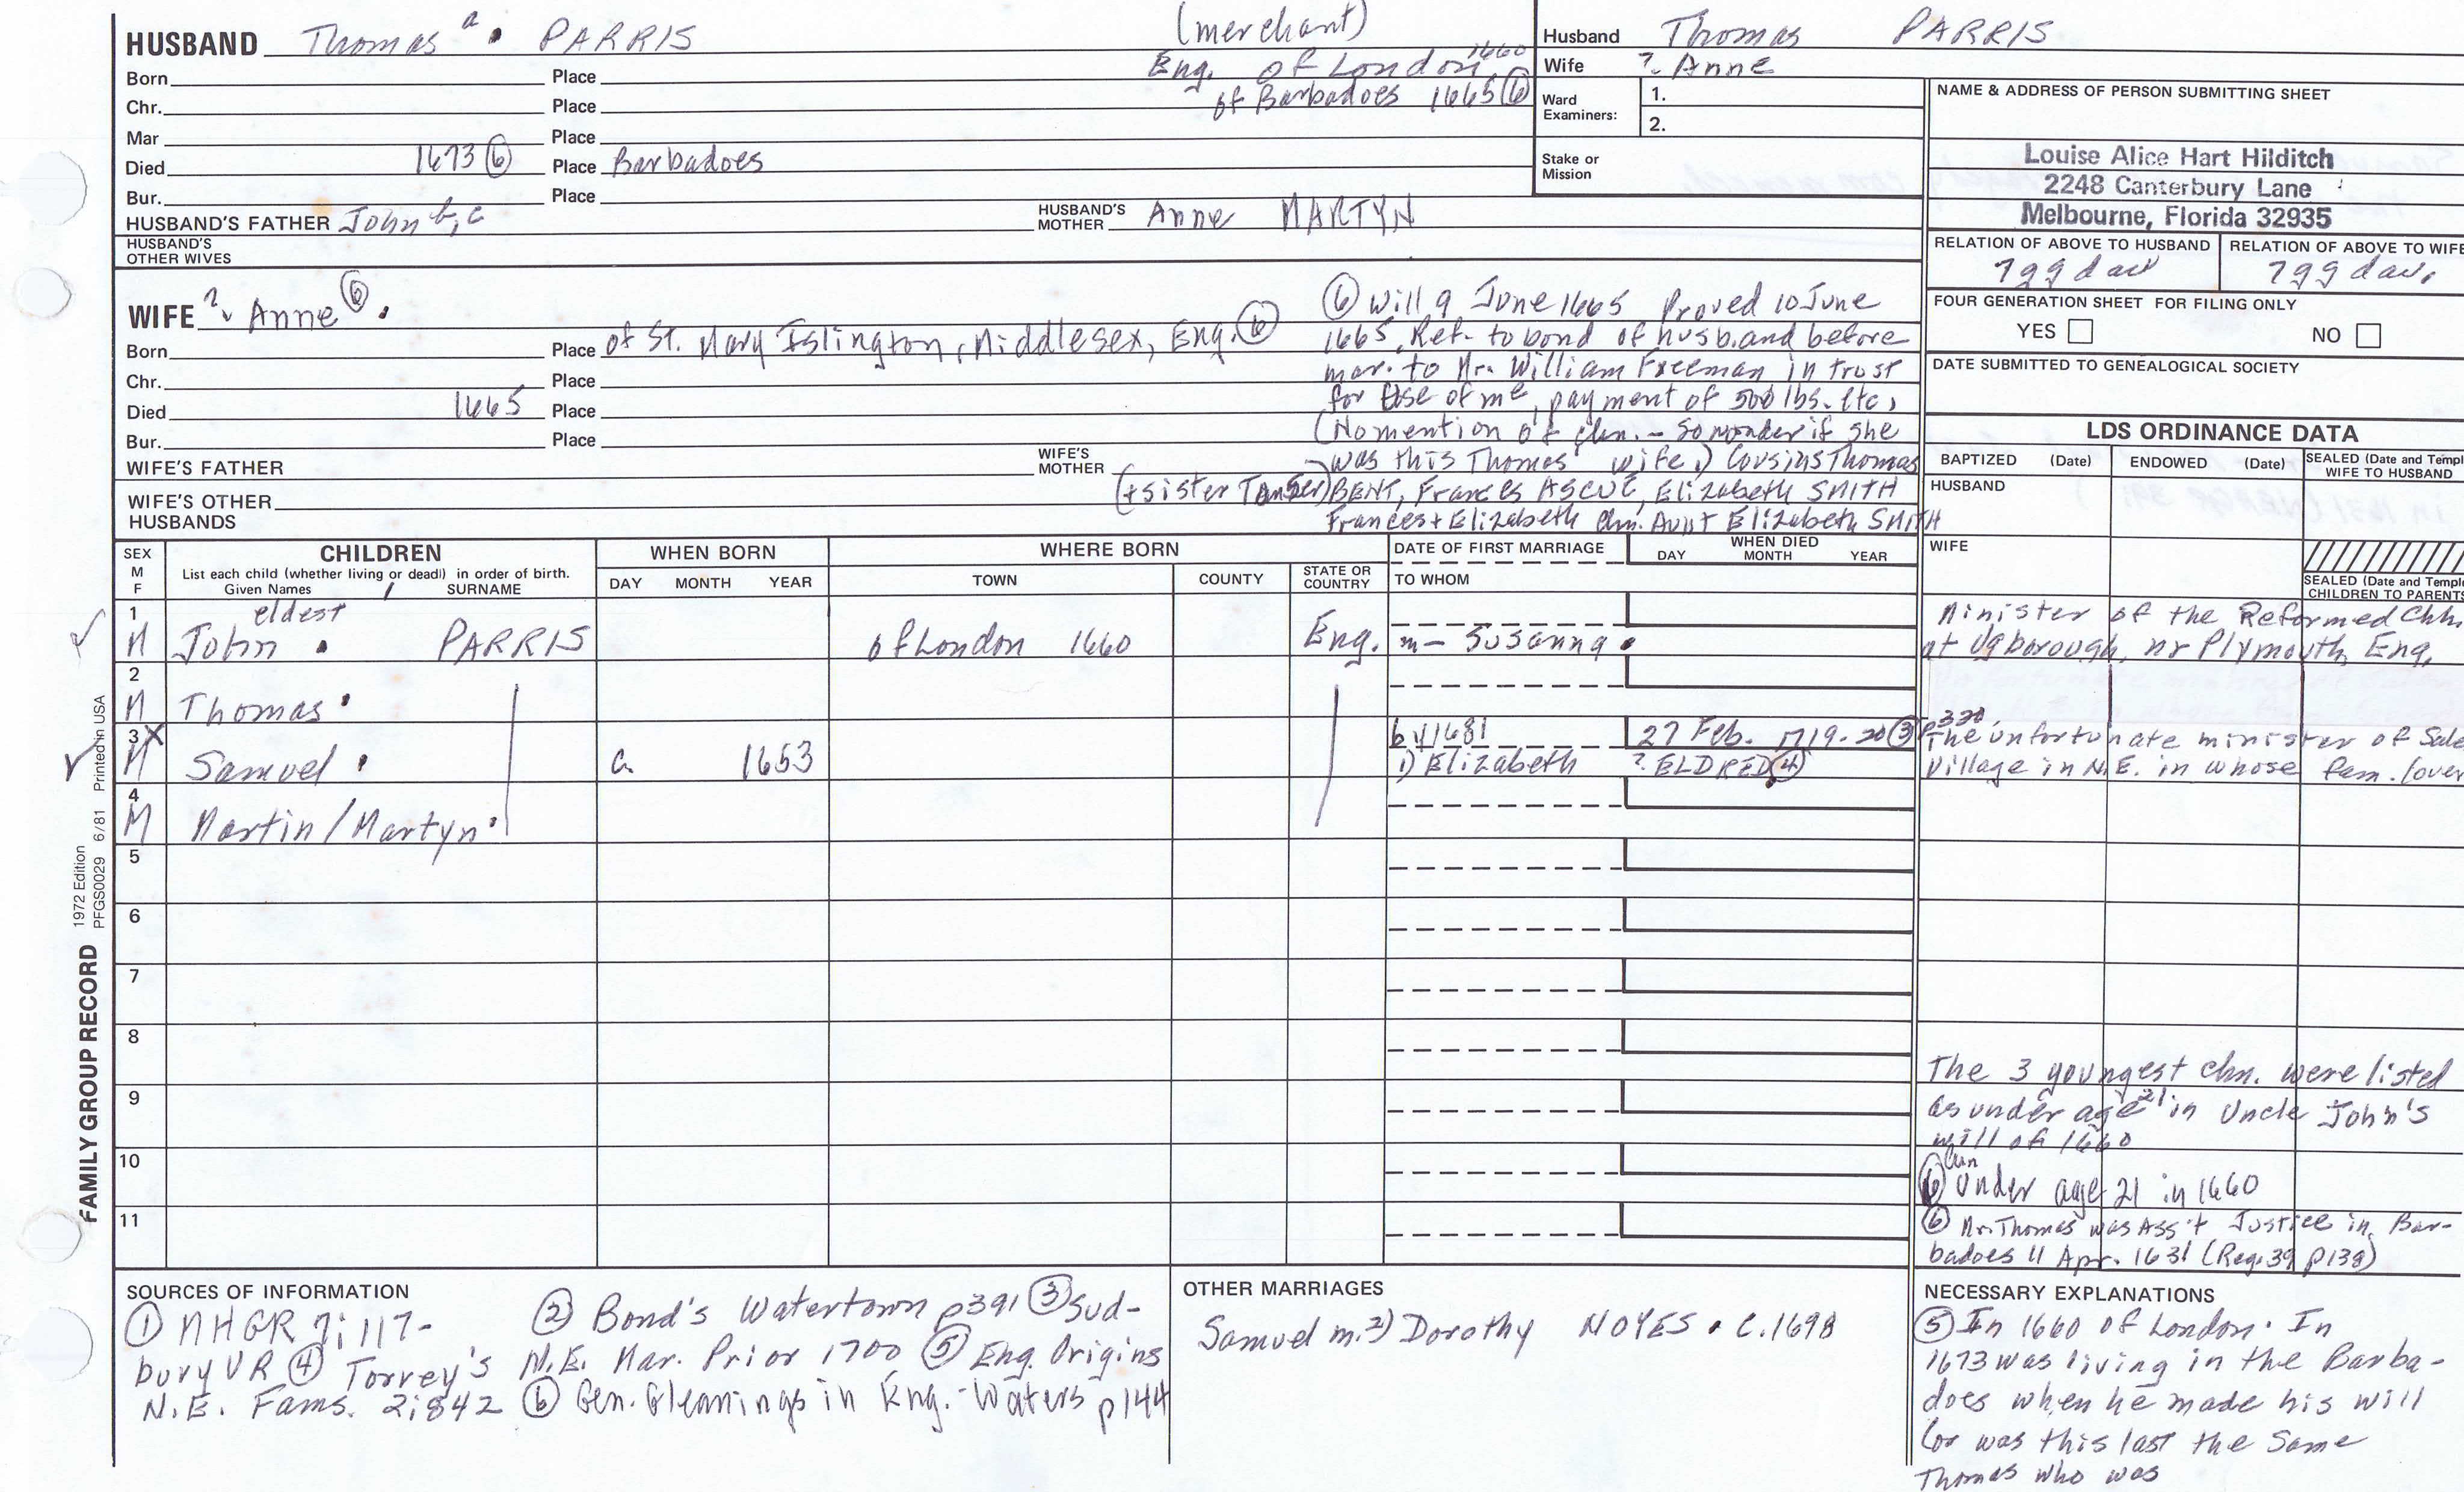 HUSBAND Thomas a • PARRIS
(merchant)
Eng. of London 1660
of Barbadoes 1665 (6)
Born Place
Chr. Place
Mar Place
Died 1673 (6) Place Barbadoes
Bur. Place
HUSBAND'S FATHER John b,c HUSBAND'S MOTHER Anne MARTYN
HUSBAND'S OTHER WIVES
WIFE ? Anne (6) •
Born Place of St. Mary Islington, Middlesex, Eng. (6)
Chr. Place
Died 1665 Place
Bur. Place
WIFE'S FATHER WIFE'S MOTHER
WIFE'S OTHER HUSBANDS
(6) Will 9 June 1665 Proved 10 June
1665. Ref. to bond of husband before
mar. to Mr. William Freeman in trust
for use of me, payment of 500 lbs. etc,
(No mention of chn. - so wonder if she
was this Thomas' wife.) Cousins Thomas
(+ sister) BENT, Frances ASCUE, Elizabeth SMITH
Frances + Elizabeth chn. Aunt Elizabeth SMITH
Husband Thomas PARRIS
Wife ?. Anne
Ward Examiners: 1.
2.
Stake or Mission
NAME & ADDRESS OF PERSON SUBMITTING SHEET
Louise Alice Hart Hilditch
2248 Canterbury Lane
Melbourne, Florida 32935
RELATION OF ABOVE TO HUSBAND RELATION OF ABOVE TO WIFE
7gg dau 7gg dau.
FOUR GENERATION SHEET FOR FILING ONLY
YES NO
DATE SUBMITTED TO GENEALOGICAL SOCIETY
LDS ORDINANCE DATA
BAPTIZED (Date) ENDOWED (Date) SEALED (Date and Templ
WIFE TO HUSBAND
HUSBAND
WIFE
SEALED (Date and Templ
CHILDREN TO PARENTS
SEX M F
CHILDREN
List each child (whether living or dead) in order of birth.
Given Names SURNAME
WHEN BORN
DAY MONTH YEAR
WHERE BORN
TOWN COUNTY STATE OR COUNTRY
DATE OF FIRST MARRIAGE
TO WHOM
WHEN DIED
DAY MONTH YEAR
1 eldest
M John • PARRIS of London 1660 Eng. m- Susanna •
Minister of the Reformed Chh.
at Ugborough, nr Plymouth, Eng.
2
M Thomas •
3 X
M Samuel • c. 1653
by 1681 27 Feb. 1719-20 (3)
1) Elizabeth ? ELDRED (4)
p 320
The unfortunate minister of Sale
Village in N.E. in whose fam. (over
4
M Martin/Martyn •
5
6
7
8
9
10
11
The 3 youngest chn. were listed
as under age 21 in Uncle John's
will of 1660
(6) Chn
under age 21 in 1660
(6) Mr. Thomas was Ass't Justice in Bar-
badoes 11 Apr. 1631 (Reg. 39 p138)
FAMILY GROUP RECORD
1972 Edition
PFGS0029 6/81 Printed in USA
SOURCES OF INFORMATION
(1) NHGR 7:117- (2) Bond's Watertown p391 (3) Sud-
bury VR (4) Torrey's N.E. Mar. Prior 1700 (5) Eng. Origins
N.E. Fams. 2:842 (6) Gen. Gleanings in Eng.-Waters p144
OTHER MARRIAGES
Samuel m. 2) Dorothy NOYES • c. 1698
NECESSARY EXPLANATIONS
(5) In 1660 of London. In
1673 was living in the Barba-
does when he made his will
(or was this last the same
Thomas who was